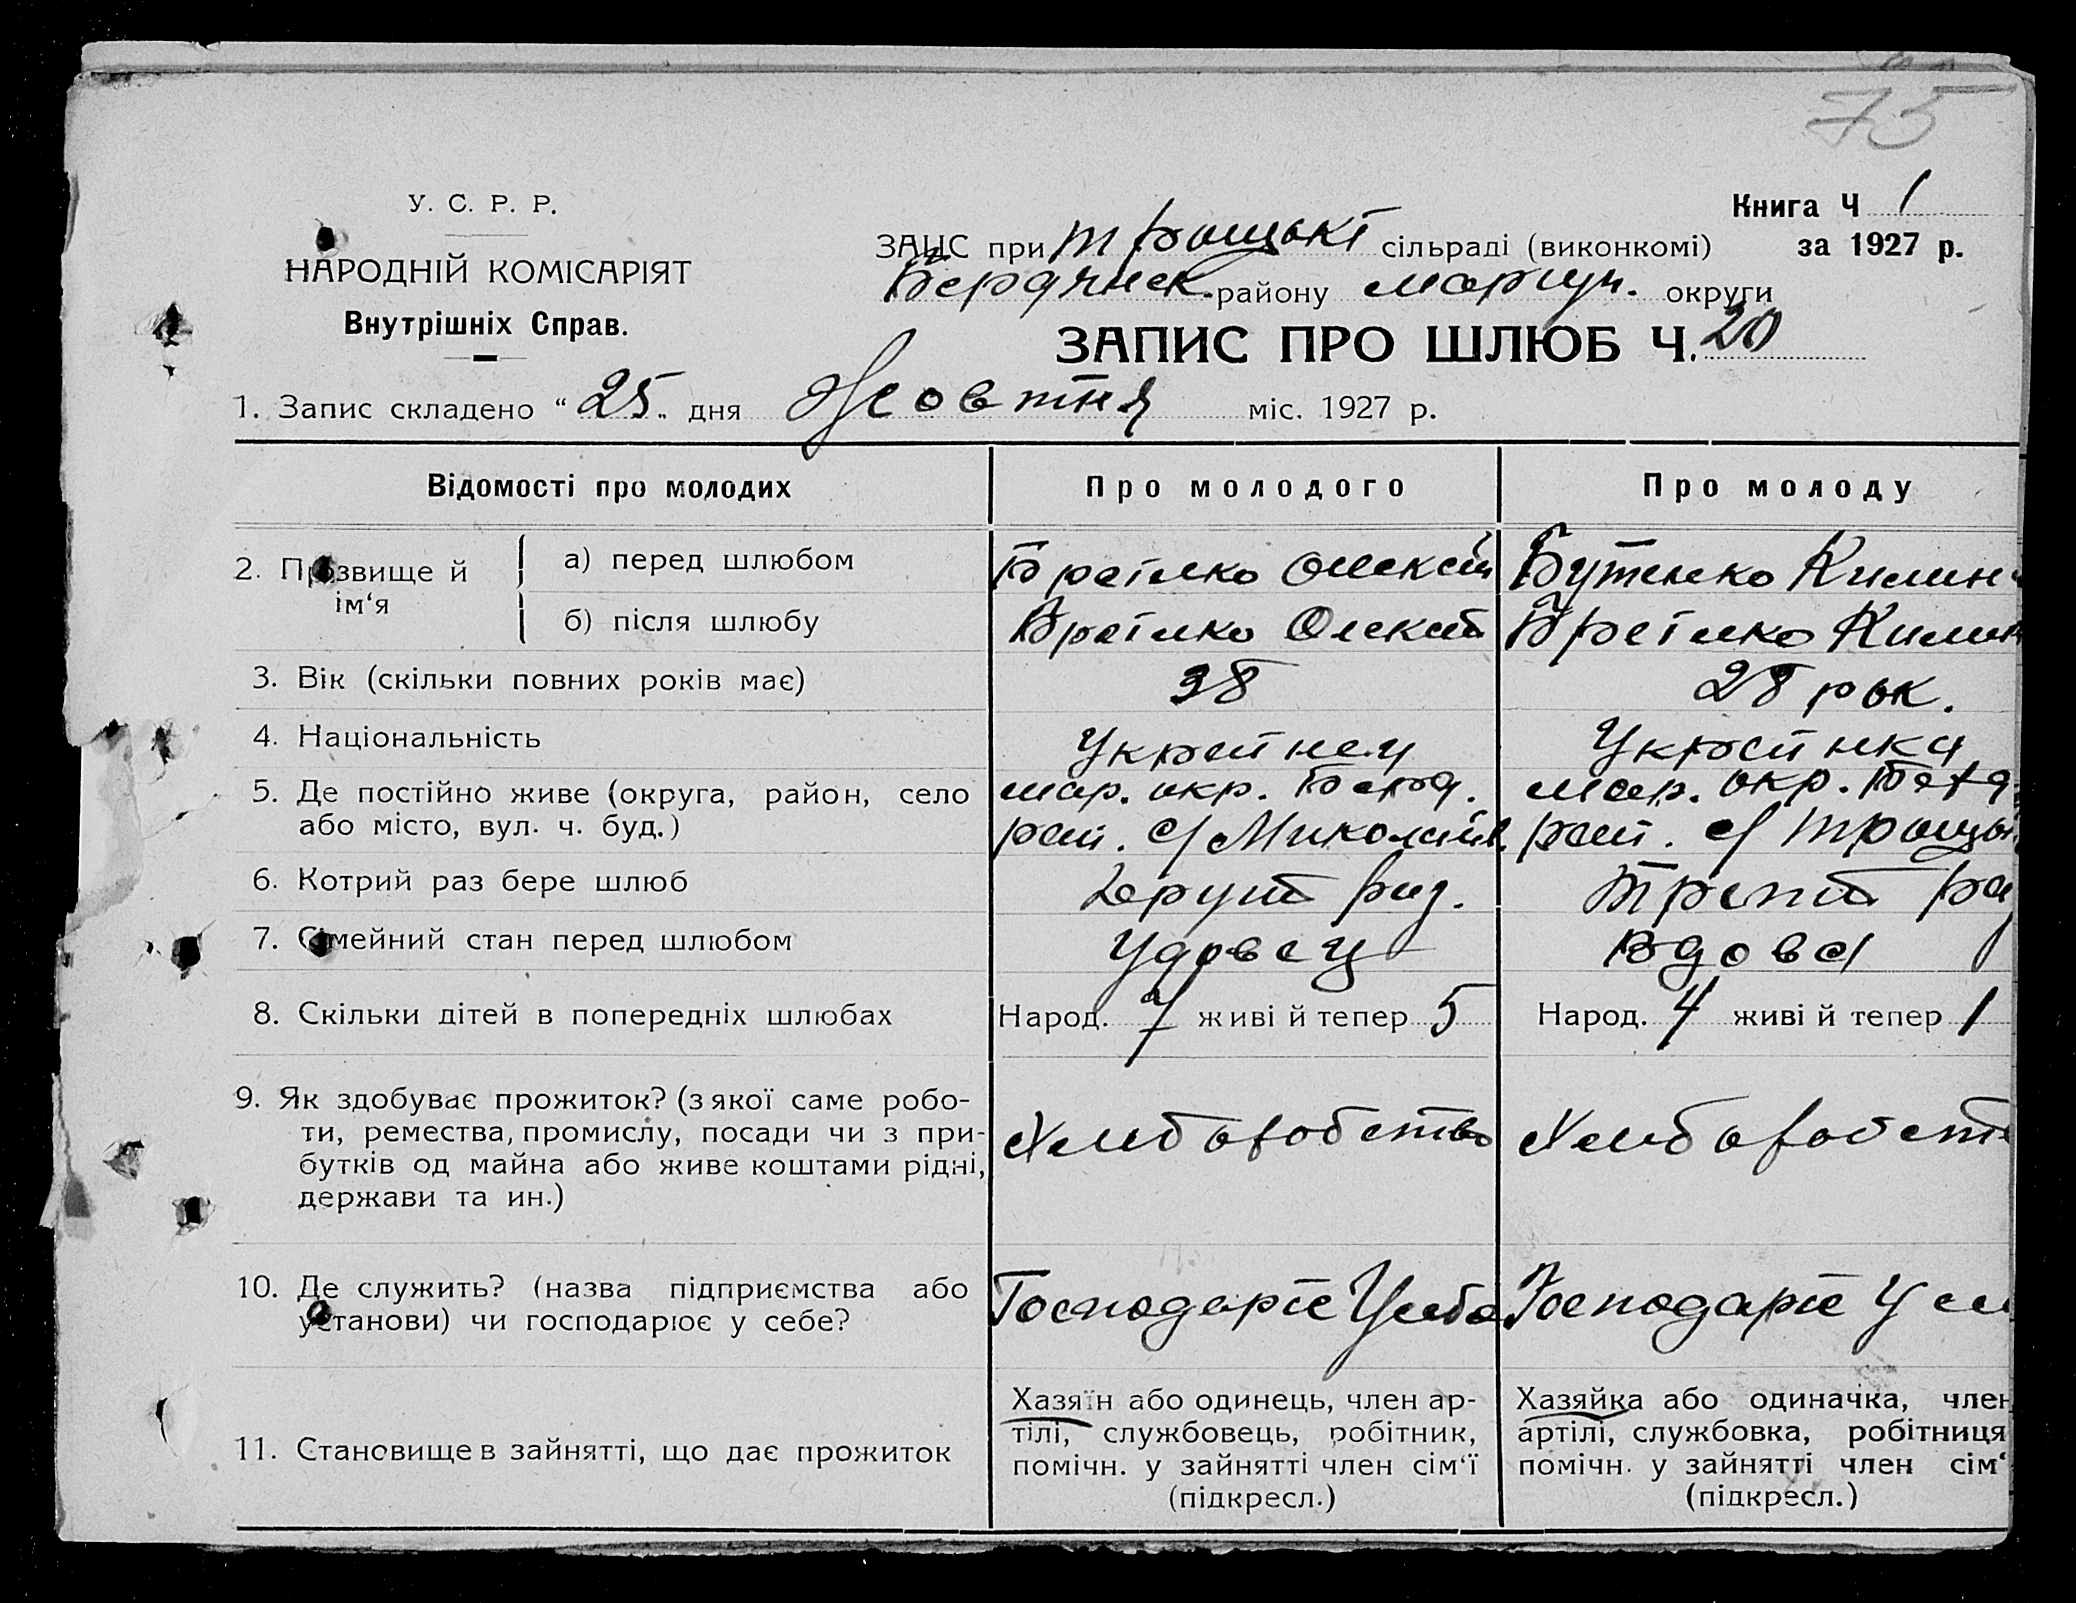 75
У. С. Р. Р.
НАРОДНІЙ КОМІСАРІЯТ
Внутрішніх Справ.
Книга Ч 1
за 1927 р.
ЗАЦС при Троцькі сільраді (виконкомі)
Бердянск. району Маріуп. округи
ЗАПИС ПРО ШЛЮБ Ч. 20
1. Запис складено “ 25 „ дня Жовтня міс. 1927 р.
Відомості про молодих Про молодого Про молоду
2. Прізвище й ім‘я
а) перед шлюбом Братко Олексій Бутенко Килин
б) після шлюбу Братко Олексій Братко Килин
3. Вік (скільки повних років має) 38 28 рок.
4. Національність Украйнец Украйнка
5. Де постійно живе (округа, район, село мар. окр. Берд. мар. окр. Берд
або місто, вул. ч. буд.) рай. с/ Миколаїв. рай. с/ Троцьк
6. Котрий раз бере шлюб Другий раз. Третій раз
7. Сімейний стан перед шлюбом Удовец Вдова
8. Скільки дітей в попередніх шлюбах Народ. 7 живі й тепер 5 Народ. 4 живі й тепер 1
9. Як здобуває прожиток? (з якої саме робо-
ти, ремества, промислу, посади чи з при- Хлиборобство Хлиборобств
бутків од майна або живе коштами рідні,
держави та ин.)
10. Де служить? (назва підприємства або Господаріє У себе Господаріє У се
установи) чи господарює у себе?
11. Становище в зайнятті, що дає прожиток
Хазяїн або одинець, член ар-
тілі, службовець, робітник,
помічн. у зайнятті член сім‘ї
(підкресл.)
Хазяйка або одиначка, член
артілі, службовка, робітниця
помічн. у зайнятті член сім‘
(підкресл.)